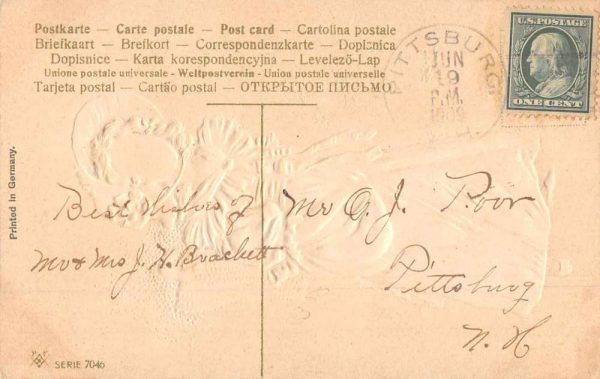 Postkarte — Carte postale — Post card — Cartolina postale
Briefkaart — Brefkort — Correspondenzkarte — Dopisnica
Dopisnice — Karta korespondencyjna — Levelező-Lap
Unione postale universale - Weltpostverein - Union postale universelle
Tarjeta postal — Cartão postal — ОТКРЫТОЕ ПИСЬМО
PITTSBURG
JUN
19
P.M.
U.S. POSTAGE
ONE CENT
Printed in Germany.
Best Wishes of
Mr & Mrs J. H. Brackett
Mr O. J. Poor
Pittsburg
N. H
SERIE 7046